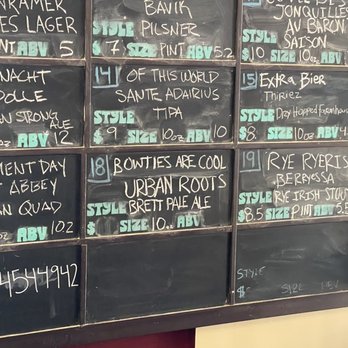 KRAMER
ES LAGER
ABV 5
BAVIK
PILSNER
STYLE
$ 7 SIZE PINT ABV 5.2
JONQUILLES
AU BARON
SAISON
$ 10 SIZE 10oz ABV
NACHT
STRONG ALE
ABV 12
14 OF THIS WORLD
SANTE ADAIRIUS
STYLE TIPA
$ 9 SIZE 10oz ABV 10
15 EXTRA BIER
THIRIEZ
STYLE Dry Hopped Farmhouse
$ 8 SIZE 10oz ABV 4
MENT DAY
ABBEY
QUAD
ABV 10.2
18 BOWTIES ARE COOL
URBAN ROOTS
STYLE BRETT PALE ALE
$ SIZE 10oz ABV
19 RYE RYERIS
BERRYESSA
STYLE RYE IRISH STOUT
$ 8.5 SIZE PINT ABV 5.
4544942
STYLE
$ SIZE ABV